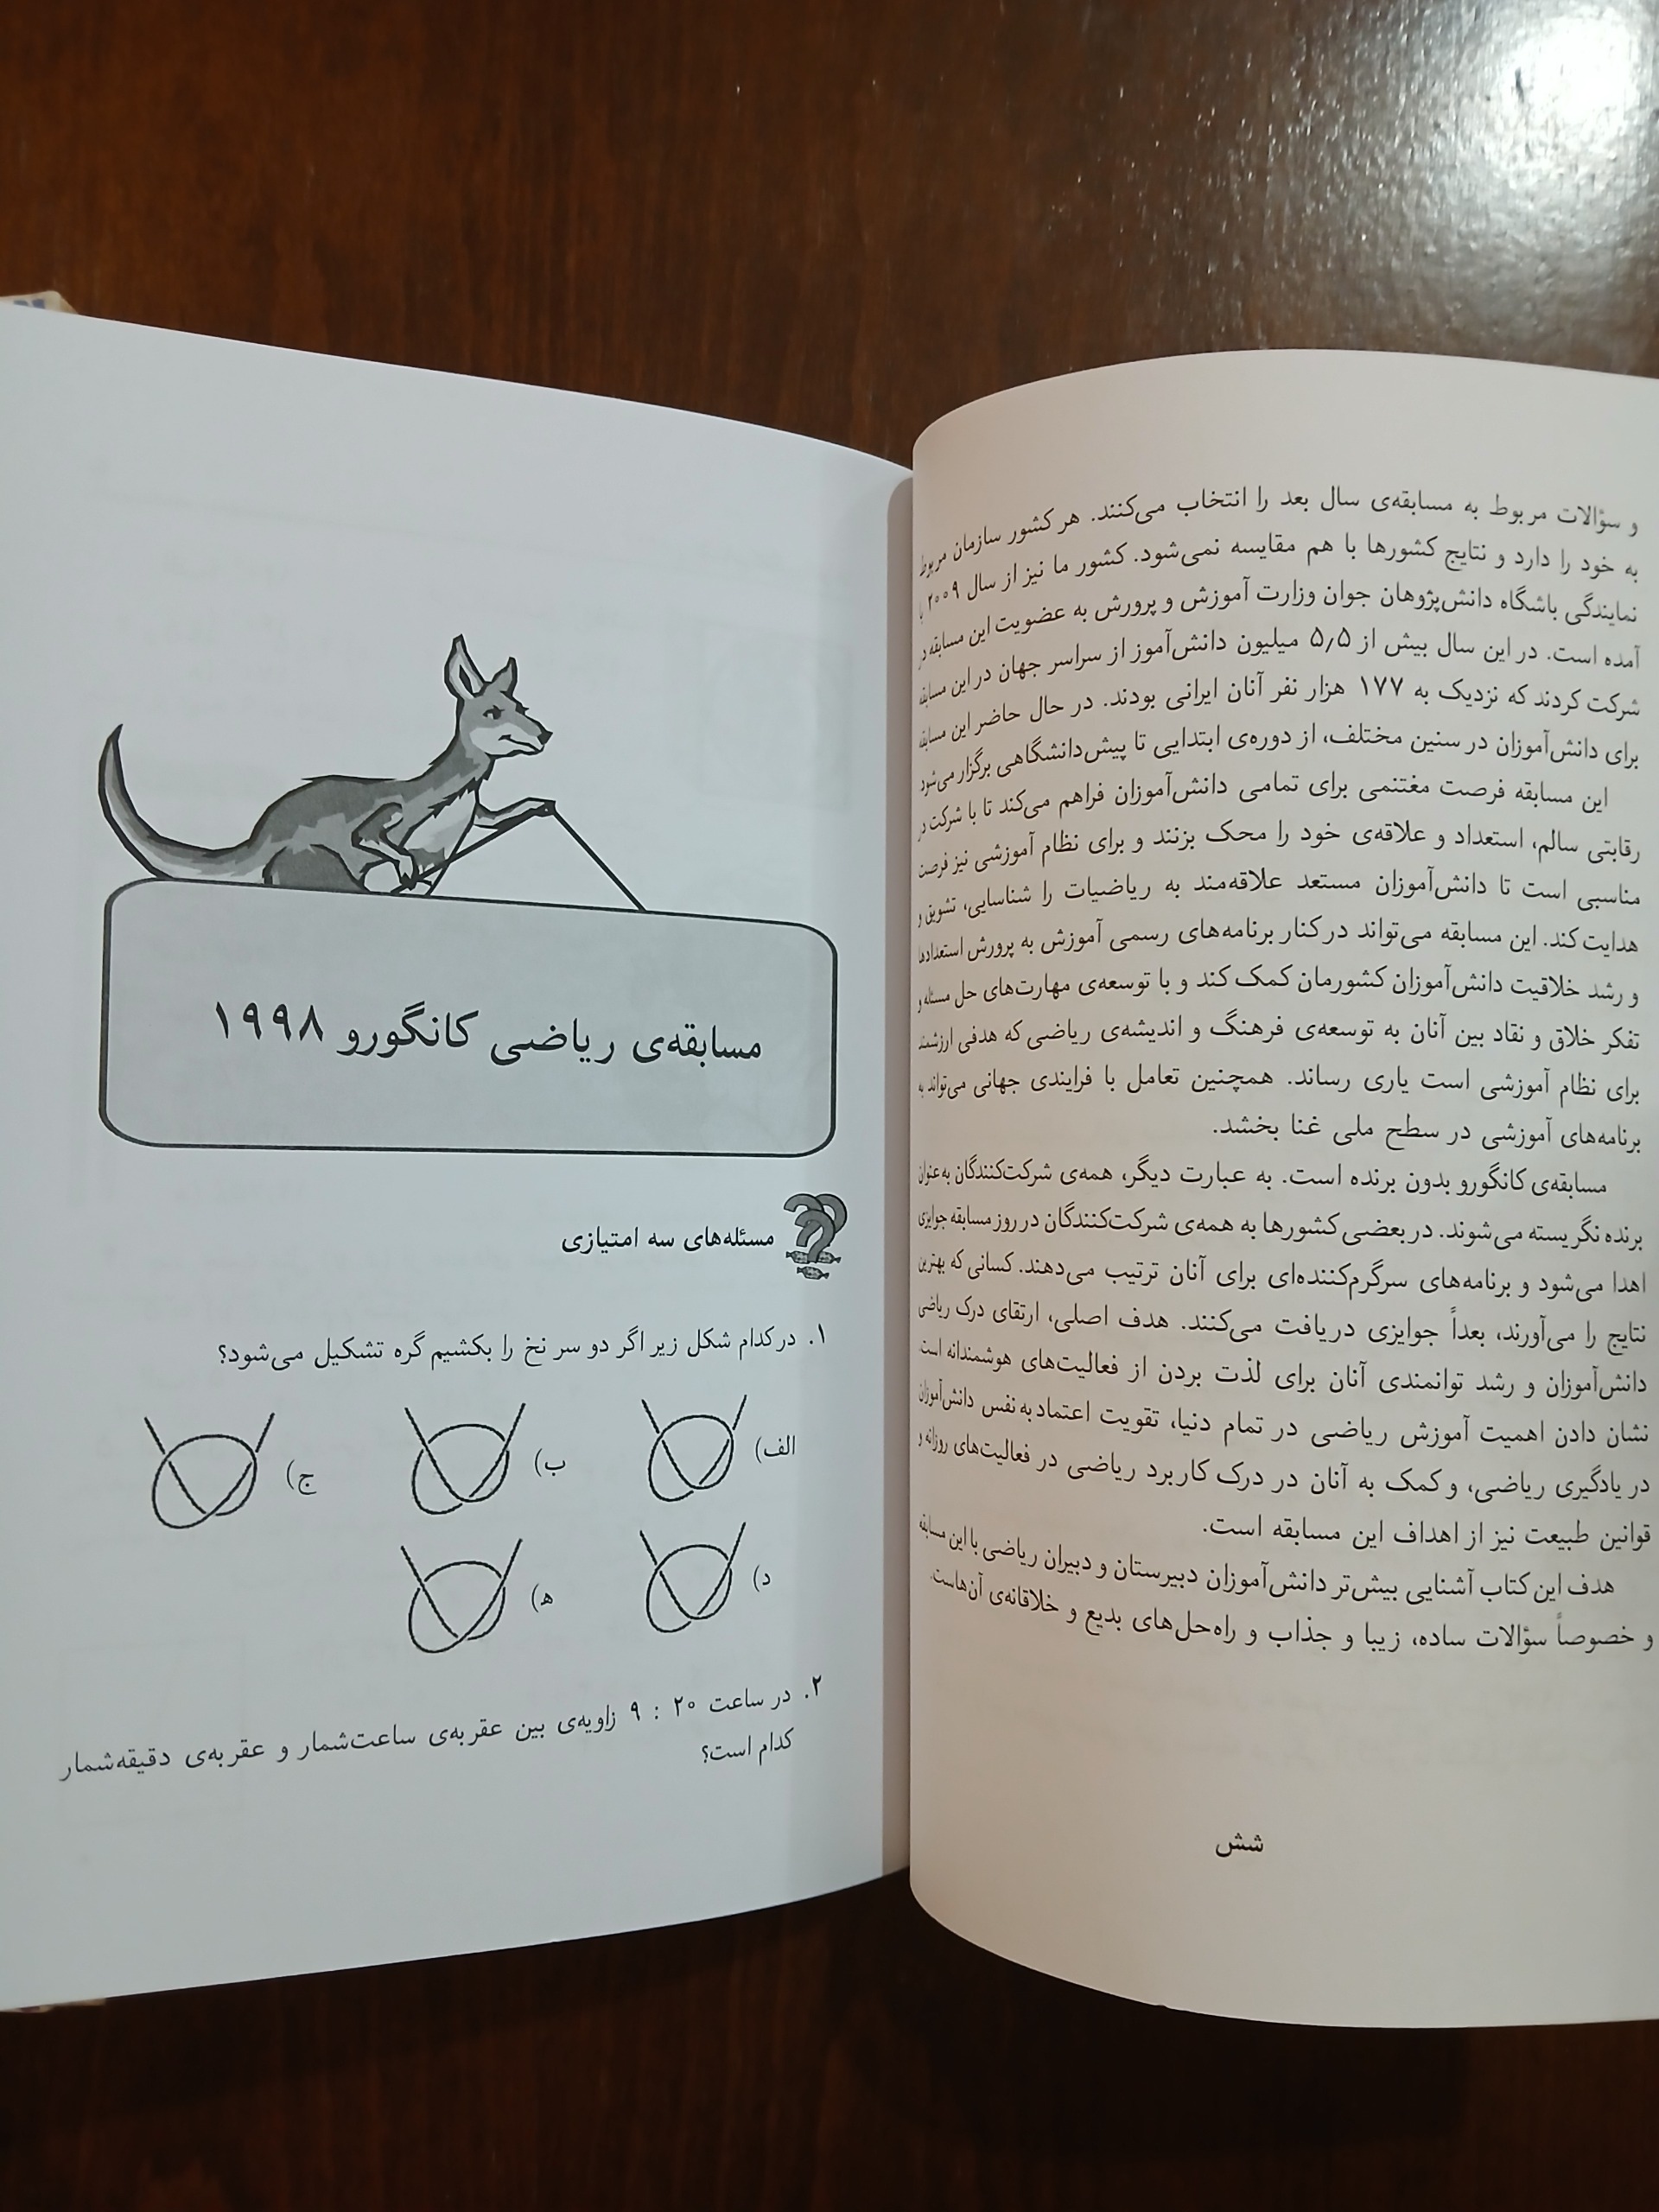 و سؤالات مربوط به مسابقه‌ی سال بعد را انتخاب می‌کنند. هر کشور سازمان مربوط
به خود را دارد و نتایج کشورها با هم مقایسه نمی‌شود. کشور ما نیز از سال ۲۰۰۹
نمایندگی باشگاه دانش‌پژوهان جوان وزارت آموزش و پرورش به عضویت این مسابقه در
آمده است. در این سال بیش از ۵٫۵ میلیون دانش‌آموز از سراسر جهان در این مسابقه
شرکت کردند که نزدیک به ۱۷۷ هزار نفر آنان ایرانی بودند. در حال حاضر این مسابقه
برای دانش‌آموزان در سنین مختلف، از دوره‌ی ابتدایی تا پیش‌دانشگاهی برگزار می‌شود
این مسابقه فرصت مغتنمی برای تمامی دانش‌آموزان فراهم می‌کند تا با شرکت در
رقابتی سالم، استعداد و علاقه‌ی خود را محک بزنند و برای نظام آموزشی نیز فرصت
مناسبی است تا دانش‌آموزان مستعد علاقه‌مند به ریاضیات را شناسایی، تشویق و
هدایت کند. این مسابقه می‌تواند در کنار برنامه‌های رسمی آموزش به پرورش استعدادها
و رشد خلاقیت دانش‌آموزان کشورمان کمک کند و با توسعه‌ی مهارت‌های حل مسئله و
تفکر خلاق و نقاد بین آنان به توسعه‌ی فرهنگ و اندیشه‌ی ریاضی که هدفی ارزشمند
برای نظام آموزشی است یاری رساند. همچنین تعامل با فرایندی جهانی می‌تواند به
برنامه‌های آموزشی در سطح ملی غنا بخشد.
مسابقه‌ی کانگورو بدون برنده است. به عبارت دیگر، همه‌ی شرکت‌کنندگان به عنوان
برنده نگریسته می‌شوند. در بعضی کشورها به همه‌ی شرکت‌کنندگان در روز مسابقه جوایزی
اهدا می‌شود و برنامه‌های سرگرم‌کننده‌ای برای آنان ترتیب می‌دهند. کسانی که بهترین
نتایج را می‌آورند، بعداً جوایزی دریافت می‌کنند. هدف اصلی، ارتقای درک ریاضی
دانش‌آموزان و رشد توانمندی آنان برای لذت بردن از فعالیت‌های هوشمندانه است.
نشان دادن اهمیت آموزش ریاضی در تمام دنیا، تقویت اعتماد به نفس دانش‌آموزان
در یادگیری ریاضی، و کمک به آنان در درک کاربرد ریاضی در فعالیت‌های روزانه و
قوانین طبیعت نیز از اهداف این مسابقه است.
هدف این کتاب آشنایی بیش‌تر دانش‌آموزان دبیرستان و دبیران ریاضی با این مسابقه
و خصوصاً سؤالات ساده، زیبا و جذاب و راه‌حل‌های بدیع و خلاقانه‌ی آن‌هاست.
شش
مسابقه‌ی ریاضی کانگورو ۱۹۹۸
مسئله‌های سه امتیازی
۱. در کدام شکل زیر اگر دو سر نخ را بکشیم گره تشکیل می‌شود؟
الف) ب) ج)
د) ه)
۲. در ساعت ۲۰ : ۹ زاویه‌ی بین عقربه‌ی ساعت‌شمار و عقربه‌ی دقیقه‌شمار
کدام است؟